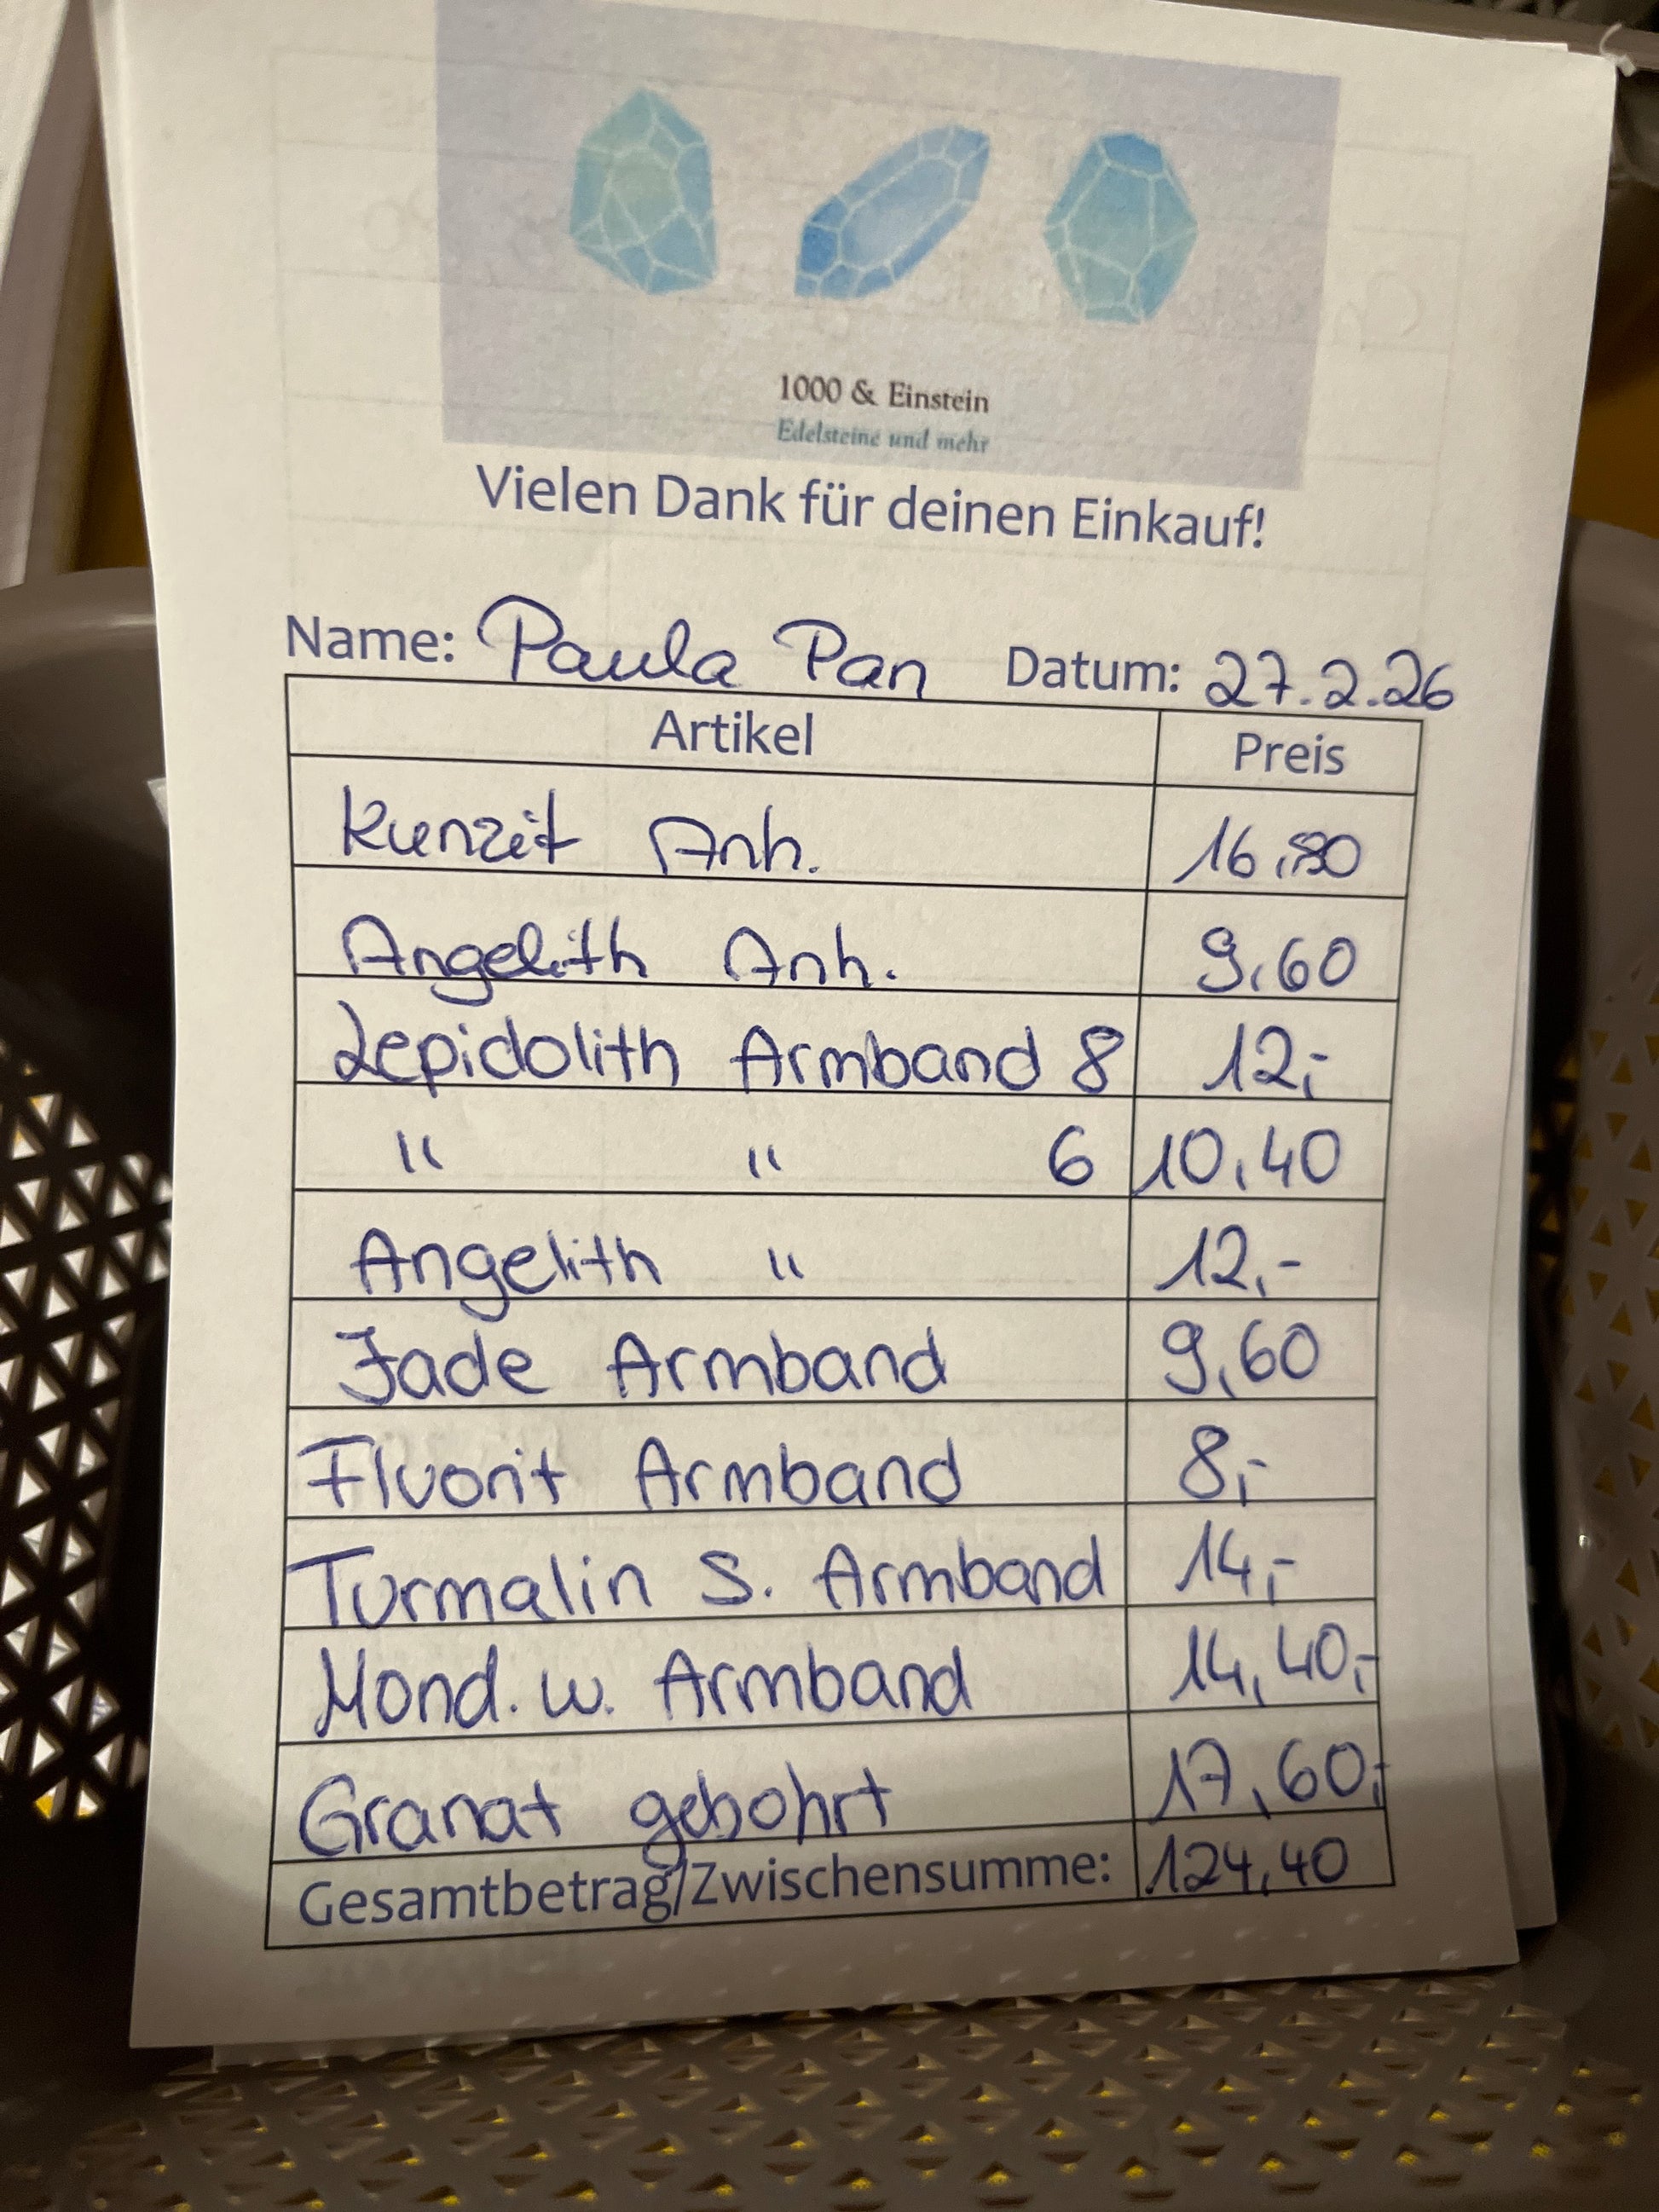 1000 & Einstein
Edelsteine und mehr
Vielen Dank für deinen Einkauf!
Name: Paula Pan Datum: 27.2.26
Artikel Preis
Kunzit Anh. 16,80
Angelith Anh. 9,60
Lepidolith Armband 8 12,-
" " 6 10,40
Angelith " 12,-
Jade Armband 9,60
Fluorit Armband 8,-
Turmalin S. Armband 14,-
Mond. w. Armband 14,40,-
Granat gebohrt 17,60,-
Gesamtbetrag/Zwischensumme: 124,40